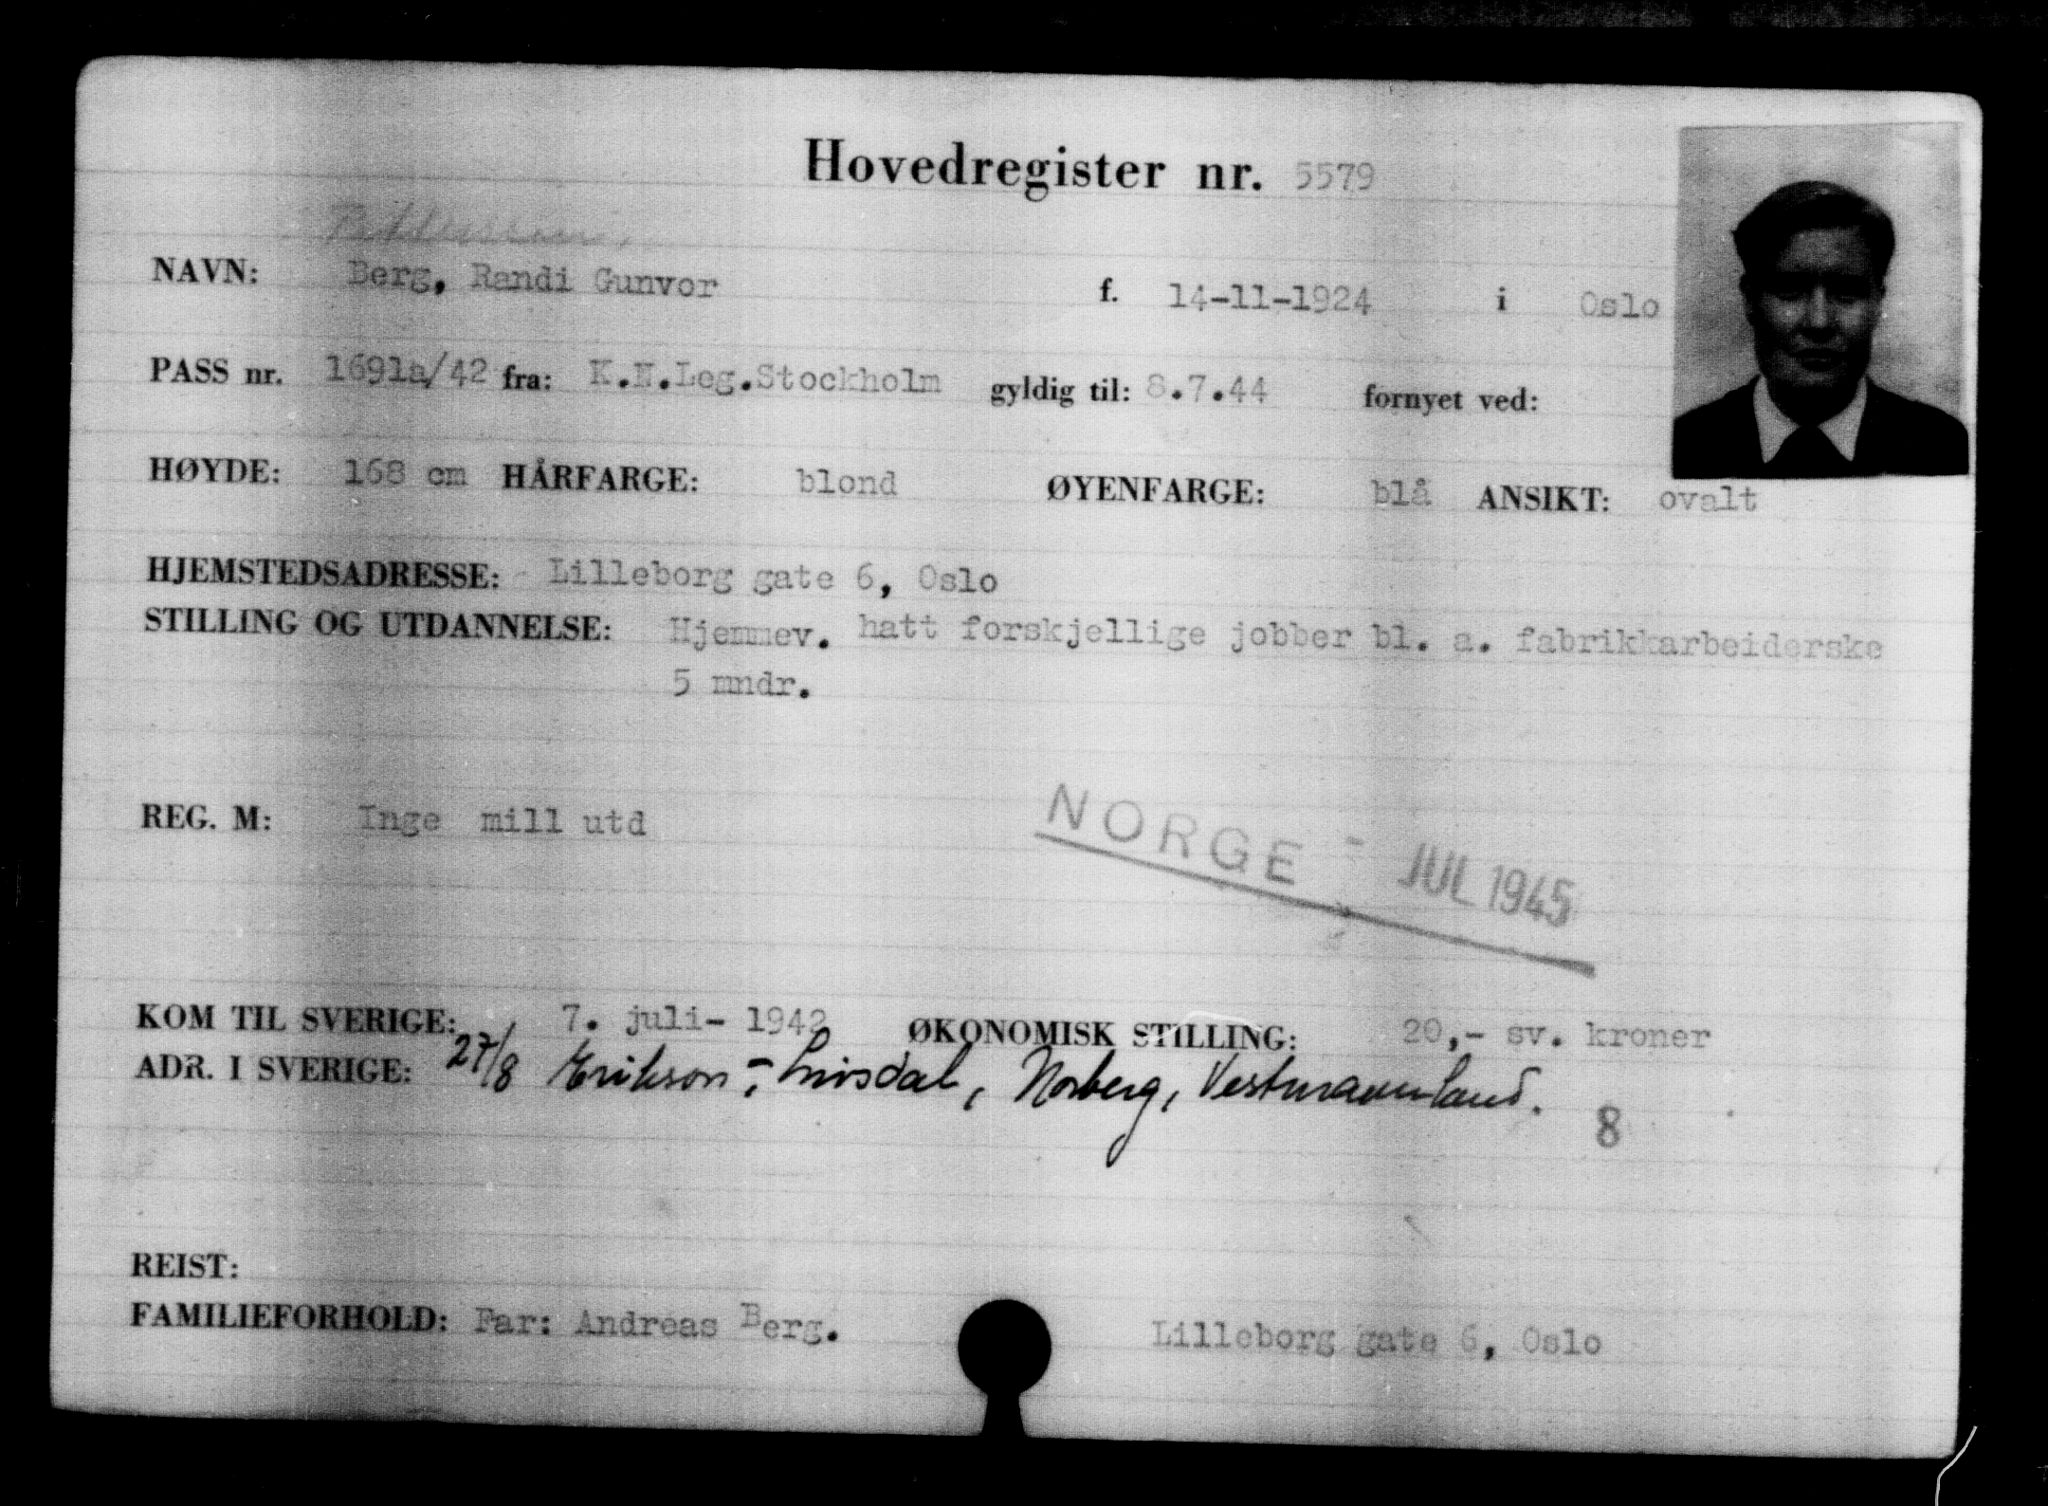 Hovedregister nr. 5579
NAVN: Berg, Randi Gunvor f. 14-11-1924 i Oslo
PASS nr. 1691a/42 fra: K.N.Leg.Stockholm gyldig til: 8.7.44 fornyet ved:
HØYDE: 168 cm HÅRFARGE: blond ØYENFARGE: blå ANSIKT: ovalt
HJEMSTEDSADRESSE: - Lilleborg gate 6, Oslo
STILLING OG UTDANNELSE: Hjemmev. hatt forskjellige jobber bl. a. fabrikkarbeiderske
5 mndr.
REG. M: Inge mill utd
NORGE - JUL 1945
KOM TIL SVERIGE: 7. juli- 1942 ØKONOMISK STILLING: 20,- sv. kroner
ADR. I SVERIGE: 27/8 Erikson, Norberg, Vestmannland.
8
REIST:
FAMILIEFORHOLD: Far: Andreas Berg. Lilleborg gate 6, Oslo